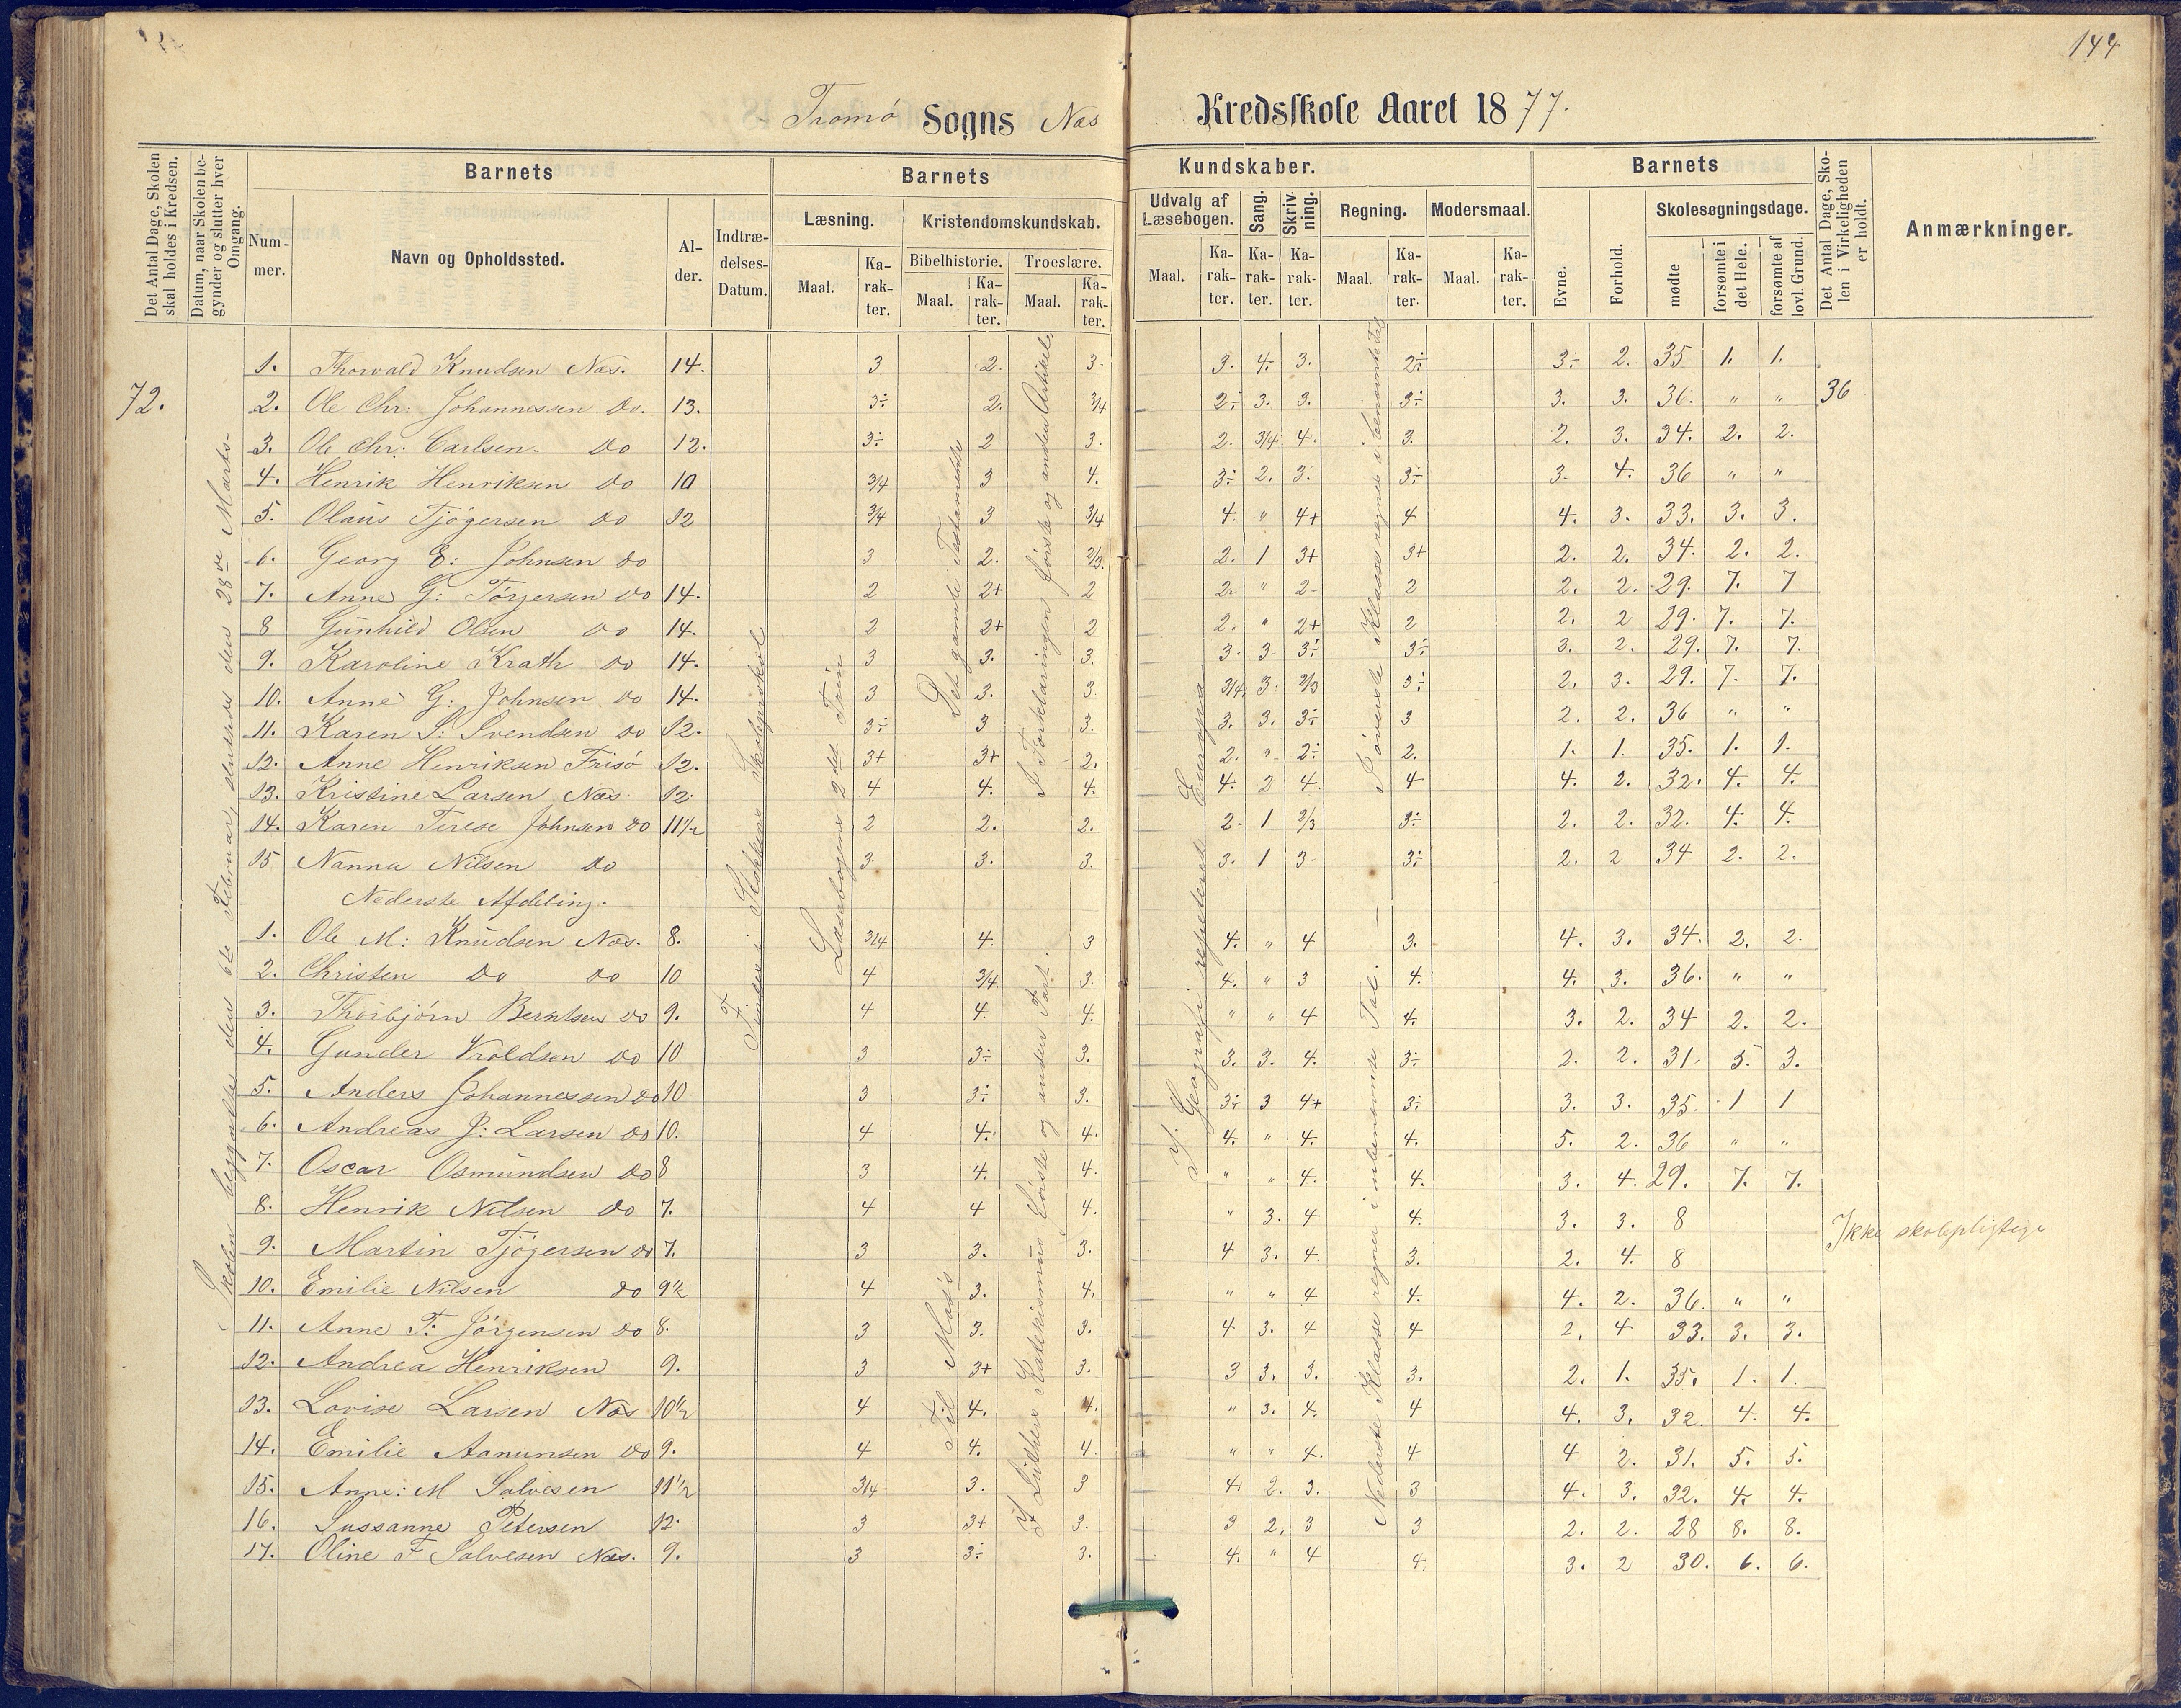 144
Tromø Sogns Næs Kredsskole Aaret 1877.
Det Antal Dage, Skolen skal holdes i Kredsen.
Datum, naar Skolen begynder og slutter hver Omgang.
Barnets
Nummer.
Navn og Opholdssted.
Alder.
Indtrædelses-Datum.
Barnets Kundskaber.
Læsning.
Maal.
Karakter.
Kristendomskundskab.
Bibelhistorie.
Maal.
Karakter.
Troeslære.
Maal.
Karakter.
Udvalg af Læsebogen.
Maal.
Karakter.
Sang.
Karakter.
Skrivning.
Karakter.
Regning.
Maal.
Karakter.
Modersmaal.
Maal.
Karakter.
Barnets
Evne.
Forhold.
Skolesøgningsdage.
mødte
forsømte i det Hele.
forsømte af lovl. Grund.
Det Antal Dage, Skolen i Virkeligheden er holdt.
Anmærkninger.
72.
Skolen begyndte den 6te Februar, sluttede den 28de Marts
Findes i Stokkens Skoleprotokol
Læsebogens 2det Trin
Det gamle Testamente
I Forklaringen første og anden Artikel.
I Geografi repeteret Europa
Øverste Klasse regnet i benævnte Tal
1. Thorvald Knudsen Næs. 14. 3 2. 3. 3. 4. 3. 2÷ 3÷ 2. 35 1. 1.
2. Ole Chr: Johannessen do. 13. 3÷ 2. 3/4 2÷ 3. 3. 3÷ 3. 3. 36. " " 36
3. Ole Chr: Carlsen. do 12. 3÷ 2 3. 2. 3/4 4. 3. 2. 3. 34. 2. 2.
4. Henrik Henriksen do 10 3/4 3 4. 3÷ 2. 3. 3÷ 3. 4. 36 " "
5. Olaus Tjøgersen do 12 3/4 3 3/4 4. " 4+ 4 4. 3. 33. 3. 3.
6. Georg E: Johnsen do 3 2. 2/3. 2. 1 3+ 3+ 2. 2. 34. 2. 2.
7. Anne G: Torjersen do 14. 2 2+ 2 2. " 2- 2 2. 2. 29. 7. 7
8 Gunhild Olsen do 14. 2 2+ 2 2. " 2+ 2 2. 2 29. 7. 7.
9. Karoline Krath do 14. 3 3. 3. 3. 3 3÷ 3÷ 3. 2. 29. 7. 7.
10. Anne G: Johnsen do 14. 3 3. 3 3/4 3. 2/3 3÷ 2. 3. 29. 7. 7.
11. Karen S: Svendsen do 12. 3÷ 3 3. 3. 3. 3÷ 3 2. 2. 36 " "
12. Anne Henriksen Frisø 12. 3+ 3+ 2. 2. " 2÷ 2. 1. 1. 35. 1. 1.
13. Kristine Larsen Næs 12 4 4. 4. 4. 2 4. 4 4. 2. 32. 4. 4.
14. Karen Terese Johnsen do 11½ 2 2. 2. 2. 1 2/3 3÷ 2. 2. 32. 4. 4.
15 Nanna Nilsen do 3. 3. 3. 3. 1 3 3÷ 2. 2 34 2. 2.
Nederste Afdeling.
Til Mosis
I Luthers Katekismus første og anden Part.
Nederste Klasse regnet i ubenævnte Tal.
1. Ole M: Knudsen Næs. 8. 3/4 4. 3 4. " 4 3. 4. 3. 34. 2. 2.
2. Christen do do 10 4 3/4 3. 4. " 3 4. 4. 3. 36. " "
3. Thorbjørn Berntsen do 9. 4 4. 4. " " 4 4. 3. 2. 34 2. 2.
4. Gunder Kroldsen do 10 3 3÷ 3. 3. 3. 4. 3÷ 2. 2. 31. 3. 3.
5. Anders Johannessen do 10 3 3÷ 3. 3÷ 3 4+ 3÷ 3. 3. 35. 1 1
6. Andreas J: Larsen do 10. 4 4. 4. 4. " 4. 4. 5. 2. 36 " "
7. Oscar Osmundsen do 8 3 4. 4. " " 4. 4. 3. 4. 29. 7. 7.
8. Henrik Nilsen do 7. 4 4 4. " 3. 4 4. 3. 3. 8 Ikke skolepligtige
9. Martin Tjøgersen do 7. 3 3. 3. 4 3. 4. 3. 2. 4. 8
10. Emilie Nilsen do 9½ 4 3. 4. " " 4 4. 4. 2. 36. " "
11. Anne T: Jörgensen do 8. 3 3. 3. 4 3. 4 4 2. 4 33. 3. 3.
12. Andrea Henriksen 9. 3 3+ 3. 3 3. 3. 3. 2. 1. 35. 1. 1.
13. Lovise Larsen Næs 10½ 4 4. 4. " 3. 4. 4 4. 3. 32. 4. 4.
14. Emilie Aanunsen do 9. 4 4. 4. " " 4. 4 4 2. 31. 5. 5.
15. Anne: M Salvesen 11½ 3/4 3. 3 4. 2. 3. 3 4. 3. 32. 4. 4.
16. Sussanne Petersen 12. 3 3+ 3. 3 2. 3 3 2. 2. 28 8. 8.
17. Oline F Salvesen Næs. 9. 3 3÷ 3. 4. " 4 4. 3. 2 30. 6. 6.